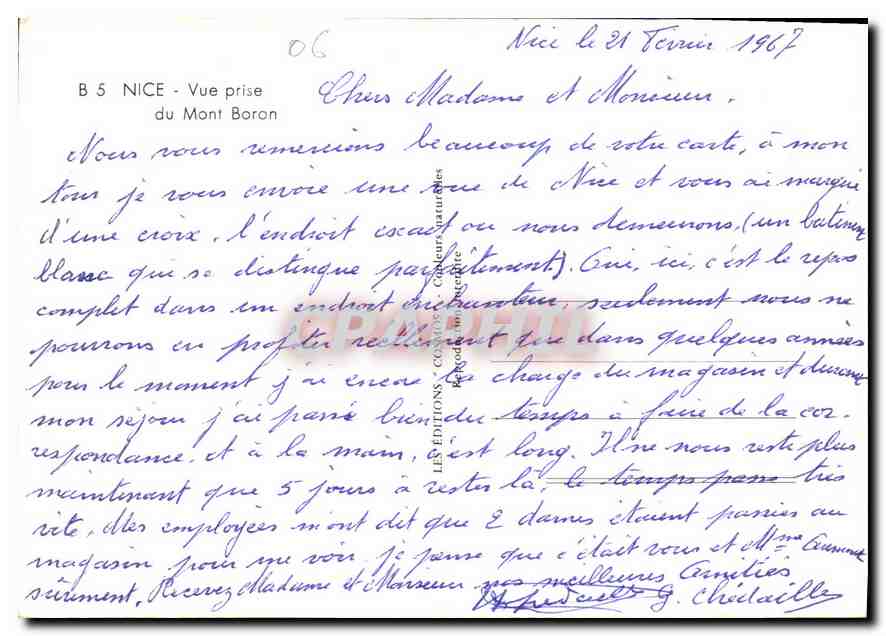 06
Nice le 21 Fevrier 1967
B 5 NICE - Vue prise
du Mont Boron
Chers Madame et Monsieur.
Nous vous remercions beaucoup de votre carte, à mon
tour je vous envoie une vue de Nice et vous ai marqué
d'une croix, l'endroit exact ou nous demeurons, (un batiment
blanc qui se distingue parfaitement). Oui, ici, c'est le repos
complet dans un endroit enchanteur, seulement nous ne
pourrons en profiter reellement que dans quelques années
pour le moment j'ai encore la charge du magasin et durant
mon séjour j'ai passé bien du temps à faire de la cor-
respondance, et à la main, c'est long. Il ne nous reste plus
maintenant que 5 jours à rester là, le temps passe très
vite, Mes employées m'ont dit que 2 dames étaient passées au
magasin pour me voir, je pense que c'était vous et Mme
sûrement, Recevez Madame et Monsieur nos meilleures Amitiés
G. Chedaille
LES ÉDITIONS - COSMOS - Couleurs naturelles
Reproduction interdite
CPAPHIL